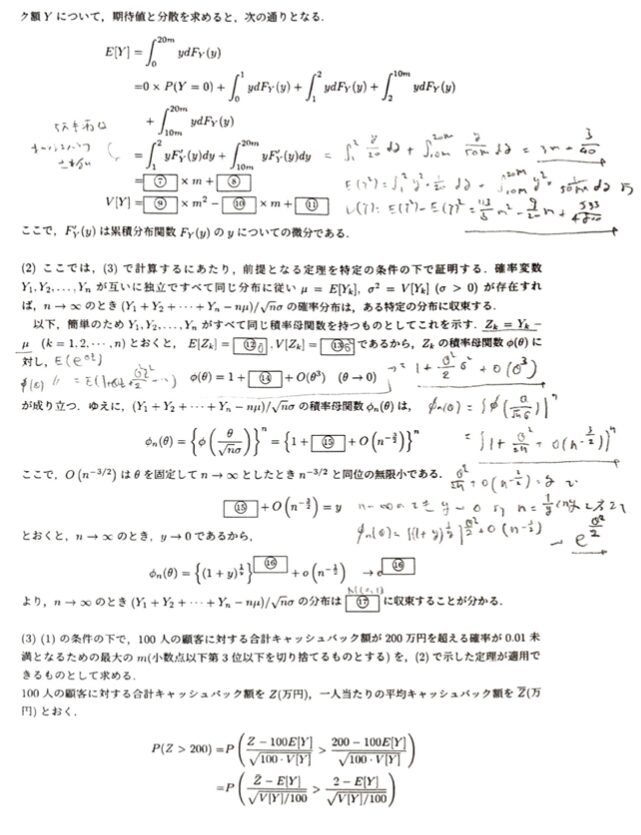 ク額 Y について，期待値と分散を求めると，次の通りとなる．
E[Y] = ∫₀^{20m} ydF_Y(y)
=0 × P(Y = 0) + ∫₀¹ ydF_Y(y) + ∫₁² ydF_Y(y) + ∫₂^{10m} ydF_Y(y)
+ ∫_{10m}^{20m} ydF_Y(y)
= ∫₁² yF'_Y(y)dy + ∫_{10m}^{20m} yF'_Y(y)dy = ∫₁² y/20 dy + ∫_{10m}^{20m} y/50m dy = 3m + 3/40
= ⑦ × m + ⑧
E(Y²)= ∫₁² y² · 1/20 dy + ∫_{10m}^{20m} y² · 1/50m dy
V[Y] = ⑨ × m² − ⑩ × m + ⑪
V(Y) = E(Y²) − E(Y)² =
ここで，F'_Y(y) は累積分布関数 F_Y(y) の y についての微分である．
(2) ここでは，(3) で計算するにあたり，前提となる定理を特定の条件の下で証明する．確率変数
Y₁, Y₂, . . . , Yₙ が互いに独立ですべて同じ分布に従い μ = E[Y_k], σ² = V[Y_k] (σ > 0) が存在すれ
ば，n → ∞ のとき (Y₁ + Y₂ + · · · + Yₙ − nμ)/√nσ の確率分布は，ある特定の分布に収束する．
以下，簡単のため Y₁, Y₂, . . . , Yₙ がすべて同じ積率母関数を持つものとしてこれを示す．Z_k = Y_k −
μ (k = 1, 2, · · · , n) とおくと，E[Z_k] = ⑫ 0, V[Z_k] = ⑬ σ² であるから，Z_k の積率母関数 φ(θ) に
対し，E(e^{θZ})
φ(θ) = 1 + ⑭ + O(θ³) (θ → 0) = 1 + θ²/2 σ² + O(θ³)
が成り立つ．ゆえに，(Y₁ + Y₂ + · · · + Yₙ − nμ)/√nσ の積率母関数 φₙ(θ) は， φₙ(θ) = {φ(θ/√nσ)}ⁿ
φₙ(θ) = {φ(θ/√nσ)}ⁿ = {1 + ⑮ + O(n^{−3/2})}ⁿ = {1 + θ²/2n + O(n^{−3/2})}ⁿ
ここで，O(n^{−3/2}) は θ を固定して n → ∞ としたとき n^{−3/2} と同位の無限小である．
θ²/2n + O(n^{−3/2}) = y
⑮ + O(n^{−3/2}) = y
とおくと，n → ∞ のとき，y → 0 であるから，
φₙ(θ) = {(1 + y)^{1/y}}^{⑯} + o(n^{−1/2}) → e^{⑯}
→ e^{θ²/2}
より，n → ∞ のとき (Y₁ + Y₂ + · · · + Yₙ − nμ)/√nσ の分布は ⑰ に収束することが分かる．
(3) (1) の条件の下で，100 人の顧客に対する合計キャッシュバック額が 200 万円を超える確率が 0.01 未
満となるための最大の m(小数点以下第 3 位以下を切り捨てるものとする) を，(2) で示した定理が適用で
きるものとして求める．
100 人の顧客に対する合計キャッシュバック額を Z(万円)，一人当たりの平均キャッシュバック額を Z̄(万
円) とおく．
P(Z > 200) =P( (Z − 100E[Y])/√(100 · V[Y]) > (200 − 100E[Y])/√(100 · V[Y]) )
=P( (Z̄ − E[Y])/√(V[Y]/100) > (2 − E[Y])/√(V[Y]/100) )